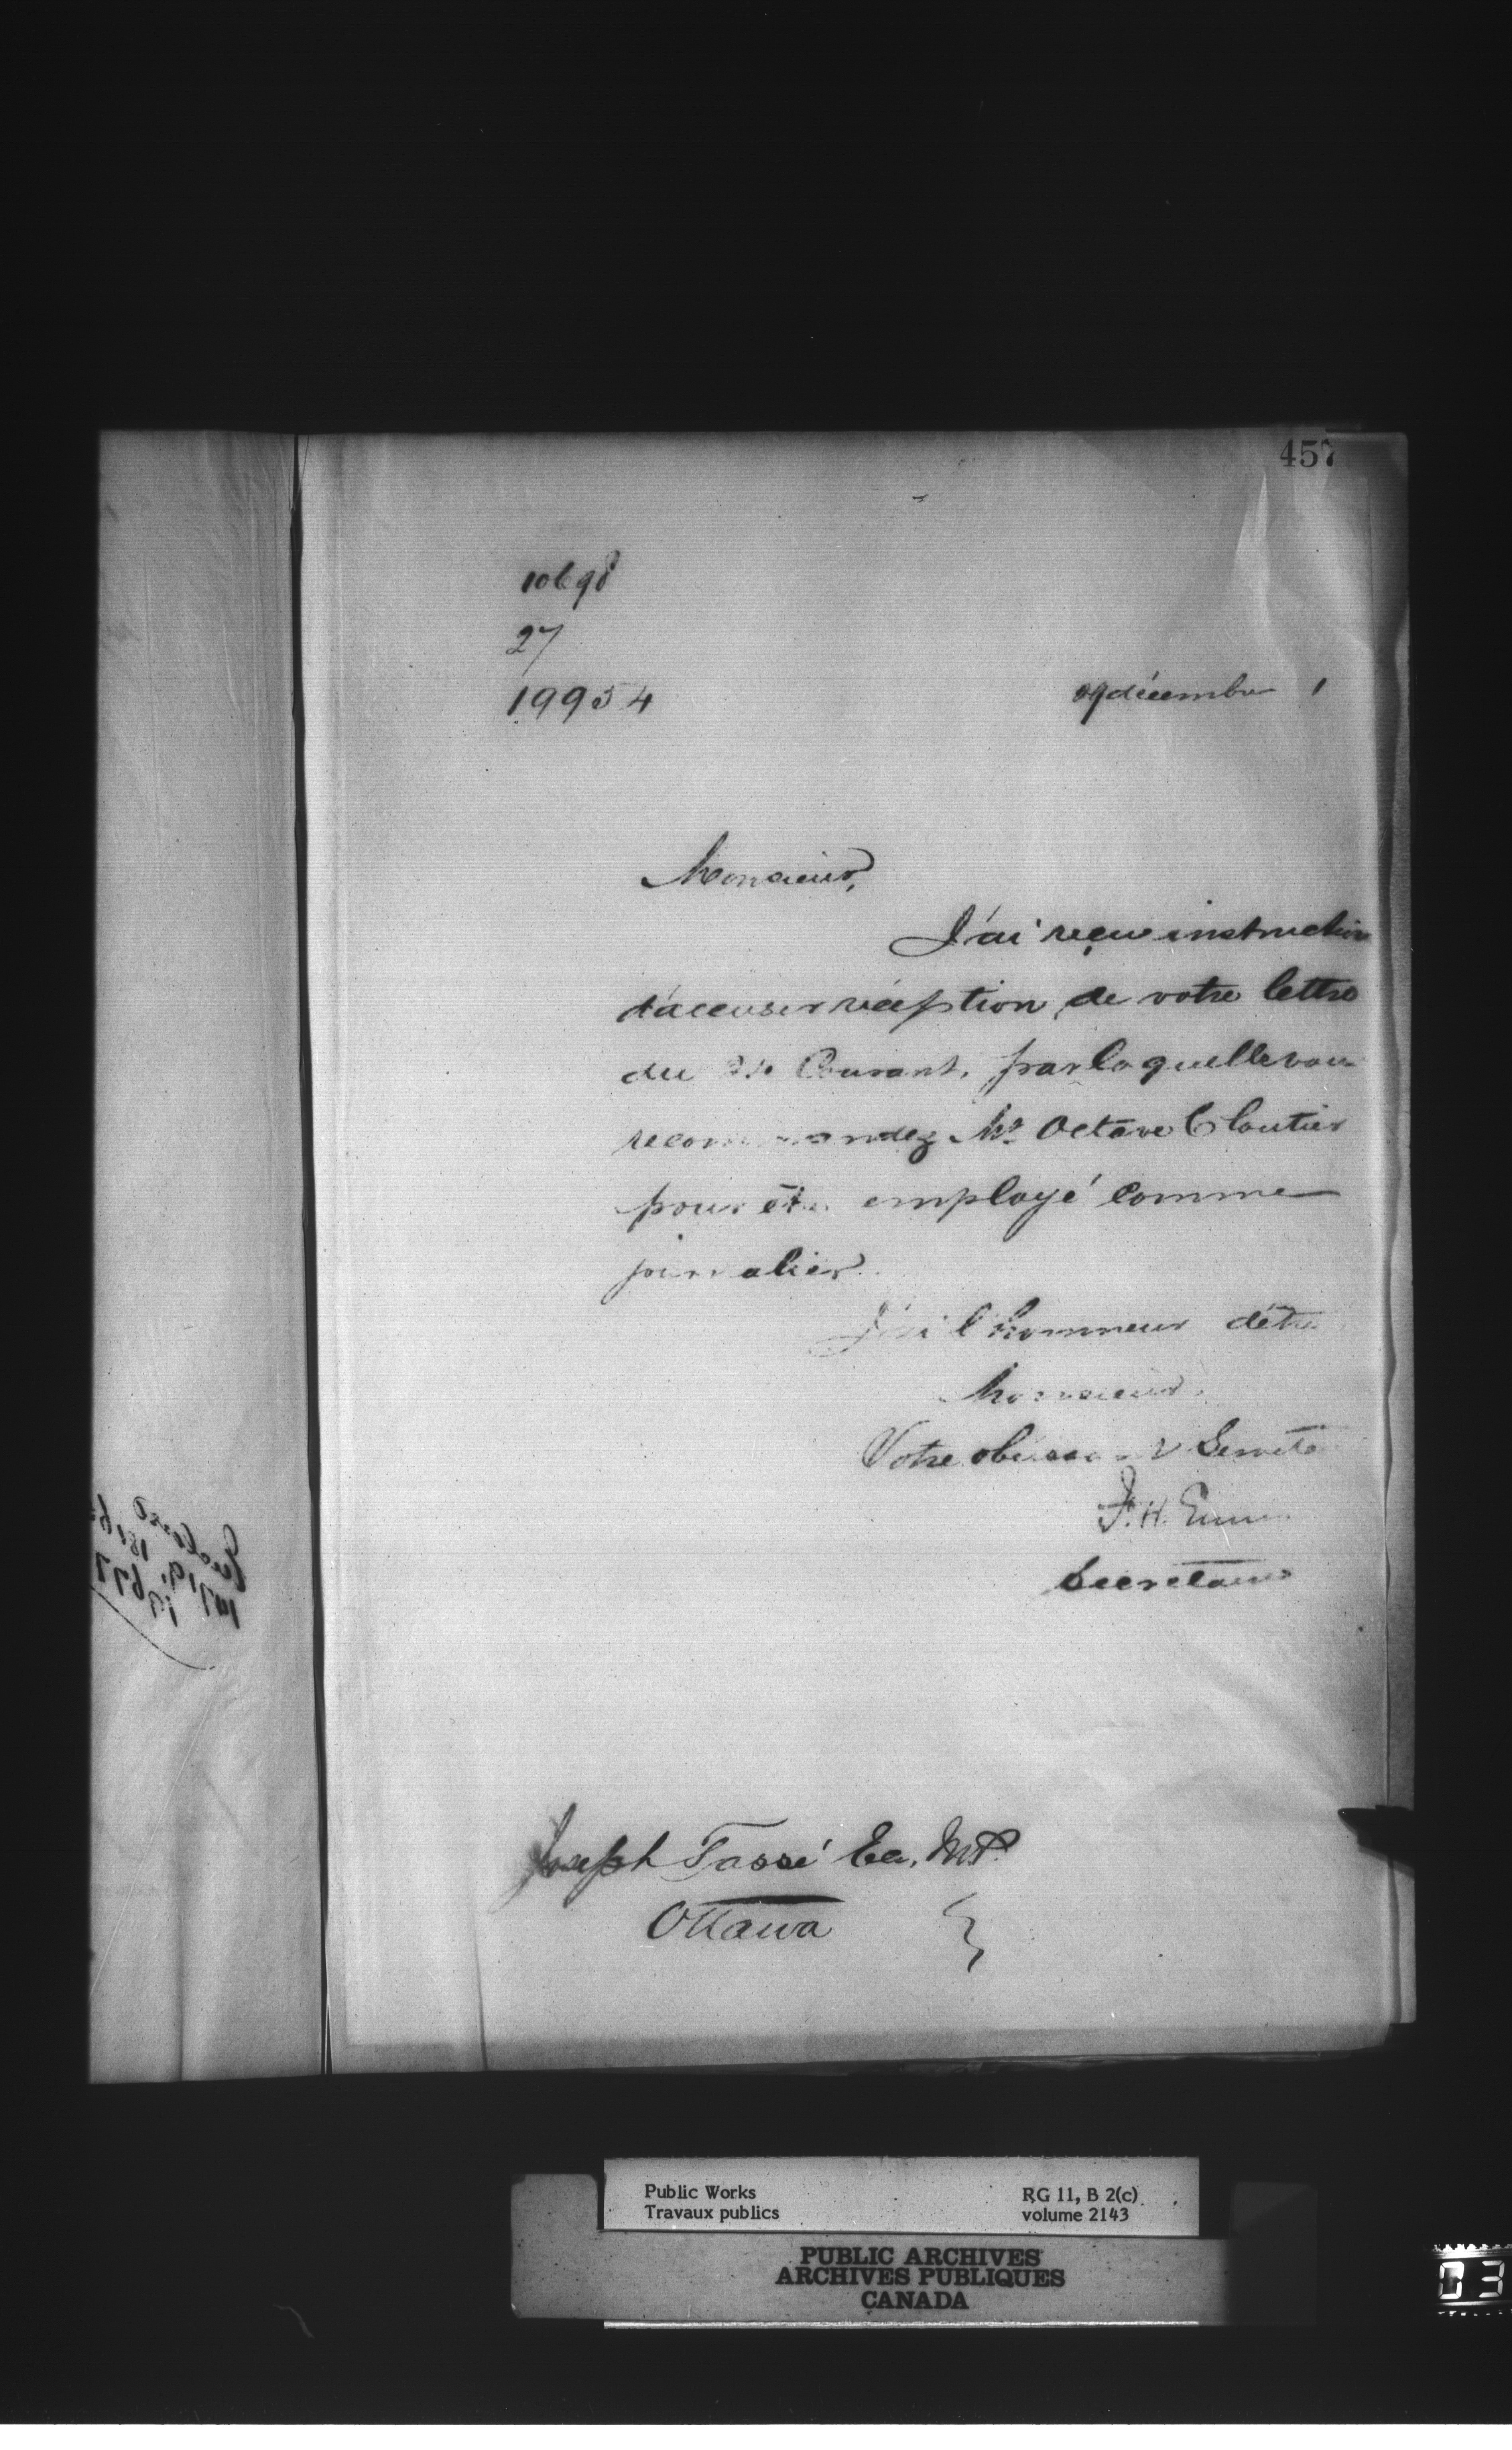 457
10698
27
19954
29 décembre 1
Monsieur,
J'ai reçu instruction
d'accuser réception de votre lettre
du Courant, par laquelle vous
recommandez Mr Octave Cloutier
pour être employé comme
journalier.
J'ai l'honneur d'être
Monsieur,
Votre obéissant Servt
F. H. Ennis
Secrétaire
Joseph Tassé Ec. M.P.
Ottawa
Public Works
Travaux publics
RG 11, B 2(c)
volume 2143
PUBLIC ARCHIVES
ARCHIVES PUBLIQUES
CANADA
03